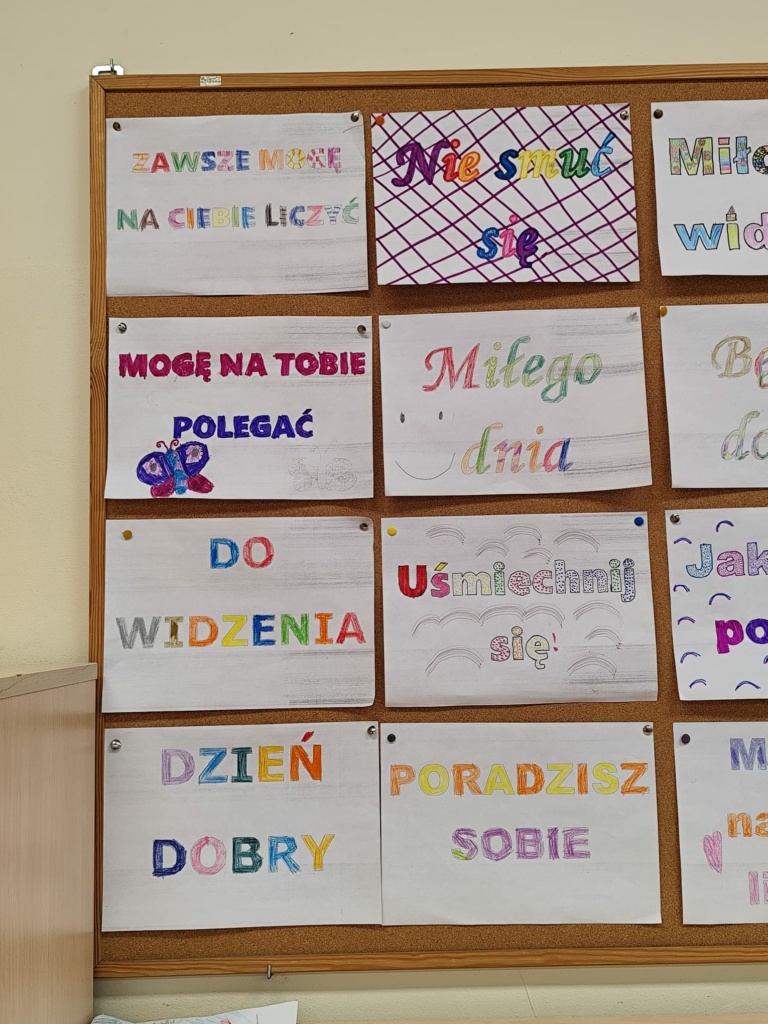 ZAWSZE MOGĘ
NA CIEBIE LICZYĆ
Nie smuć
się
MOGĘ NA TOBIE
POLEGAĆ
Miłego
dnia
DO
WIDZENIA
Uśmiechnij
się!
DZIEŃ
DOBRY
PORADZISZ
SOBIE